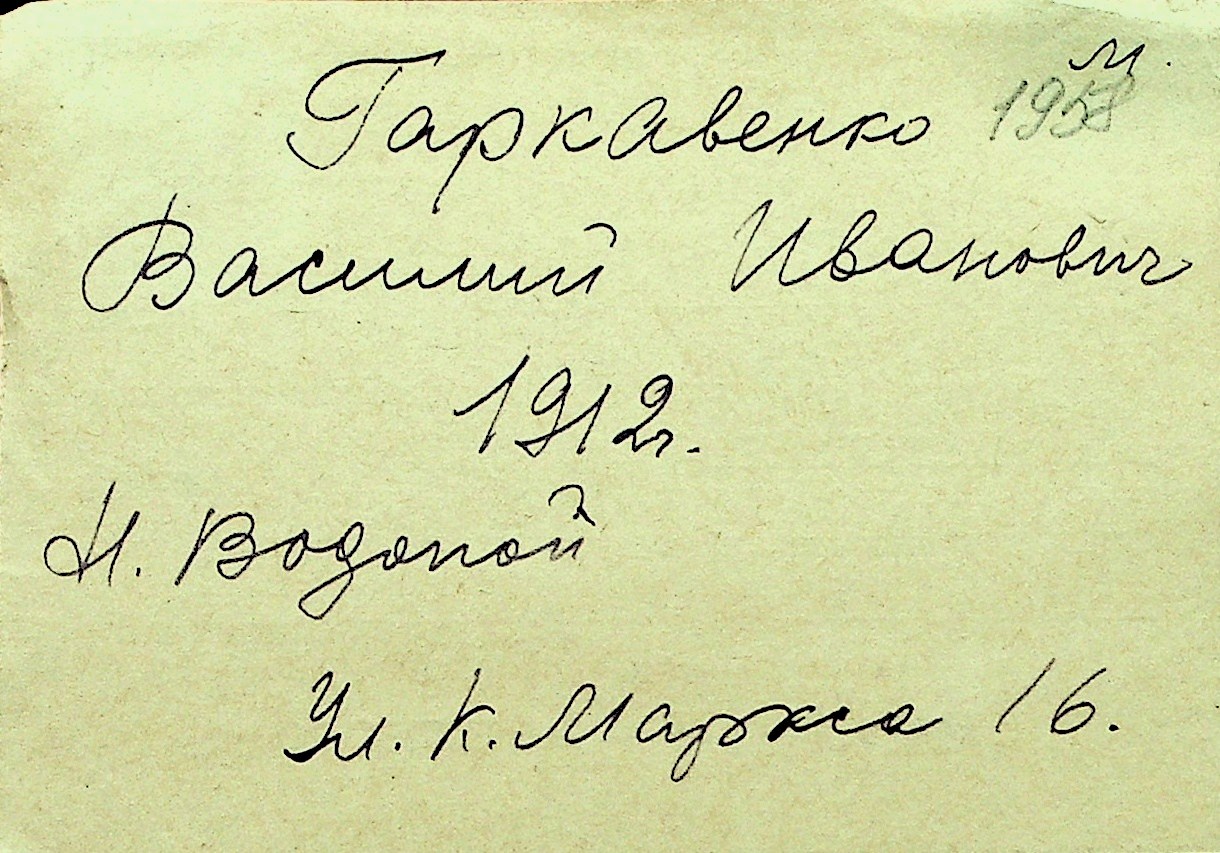 м.
Гаркавенко 1958
Василий Иванович
1912г.
Н. Водопой
Ул. К. Маркса 16.